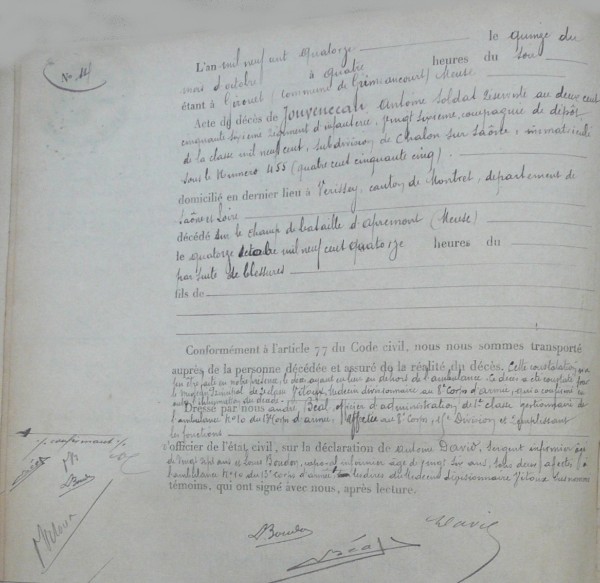 No 14
L'an mil neuf cent quatorze le quinze du
mois d'octobre à quatre heures du soir
étant à (commune de Meuse
Acte de décès de Jouvenceau Antoine Soldat réserviste au deux cent
cinquante sixième régiment d'infanterie, vingt sixième compagnie de dépôt
de la classe mil neuf cent, subdivision de Chalon sur Saône, immatriculé
sous le Numéro 455 (quatre cent cinquante cinq).
domicilié en dernier lieu à Vérissey, canton de Montret, département de
Saône et Loire
décédé sur le champ de bataille d'Apremont (Meuse)
le quatorze octobre mil neuf cent quatorze heures du
par suite de blessures
fils de
Conformément à l'article 77 du Code civil, nous nous sommes transporté
auprès de la personne décédée et assuré de la réalité du décès. Cette constatation n'a
pas été faite en notre présence, le décès ayant eu lieu en dehors de l'ambulance. Ce décès a été constaté par
le de classe Vitoux, Médecin divisionnaire au 8e Corps d'armée, qui a
l'inhumation du décédé.
Dressé par nous André, Réal, officier d'administration de classe gestionnaire de
l'ambulance No 10 du Corps d'armée, affectée au 8e Corps, 15e Division et remplissant
les fonctions
d'officier de l'état civil, sur la déclaration de Antoine David, Sergent infirmier âgé
de vingt ans et Louis Boudon, caporal infirmier âgé de vingt six ans, tous deux affectés à
l'ambulance No 10 du Corps d'armée du Médecin divisionnaire Vitoux
témoins, qui ont signé avec nous, après lecture.
Boudon
David
Réal
Vitoux